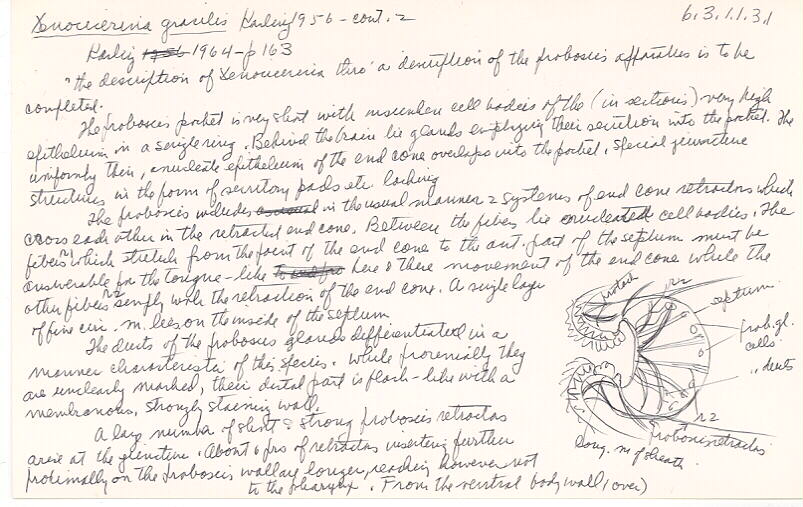 Xenocerenia gracilis Karling 1956 - cont. 2
6.3.1.1.3.1
Karling 1956 1964 - p 163
"the description of Xenocerenia thro' a description of the proboscis apparatus is to be
completed.
The proboscis pocket is very short with insunken cell bodies of the (in sections) very high
epithelium in a single ring. Behind the brain lie glands emptying their secretion into the pocket. The
uniformly thin, anucleate epithelium of the end cone overlaps into the pocket. Special
structures in the form of secretory pads etc lacking
The proboscis includes in the usual manner 2 systems of end cone retractors which
cross each other in the retracted end cone. Between the fibers lie cell bodies. The
fibers r1 which stretch from the point of the end cone to the ant. part of the septum must be
answerable for the tongue-like here & there movement of the end cone while the
other fibers r2 simply work the retraction of the end cone. A single layer
of fine circ. m. lies on the inside of the septum
The ducts of the proboscis glands differentiated in a
manner characteristic of this species. While proximally they
are unclearly marked, their distal part is flask-like with a
membranous, strongly staining wall.
A large number of short & strong proboscis retractors
arise at the junction. About 6 prs of retractors inserting further
proximally on the proboscis wall are longer, reaching however not
to the pharynx. From the ventral body wall, (over)
protach
r2
septum
prob. gl.
cells
" ducts
r2
proboscis retractors
long. m of sheath